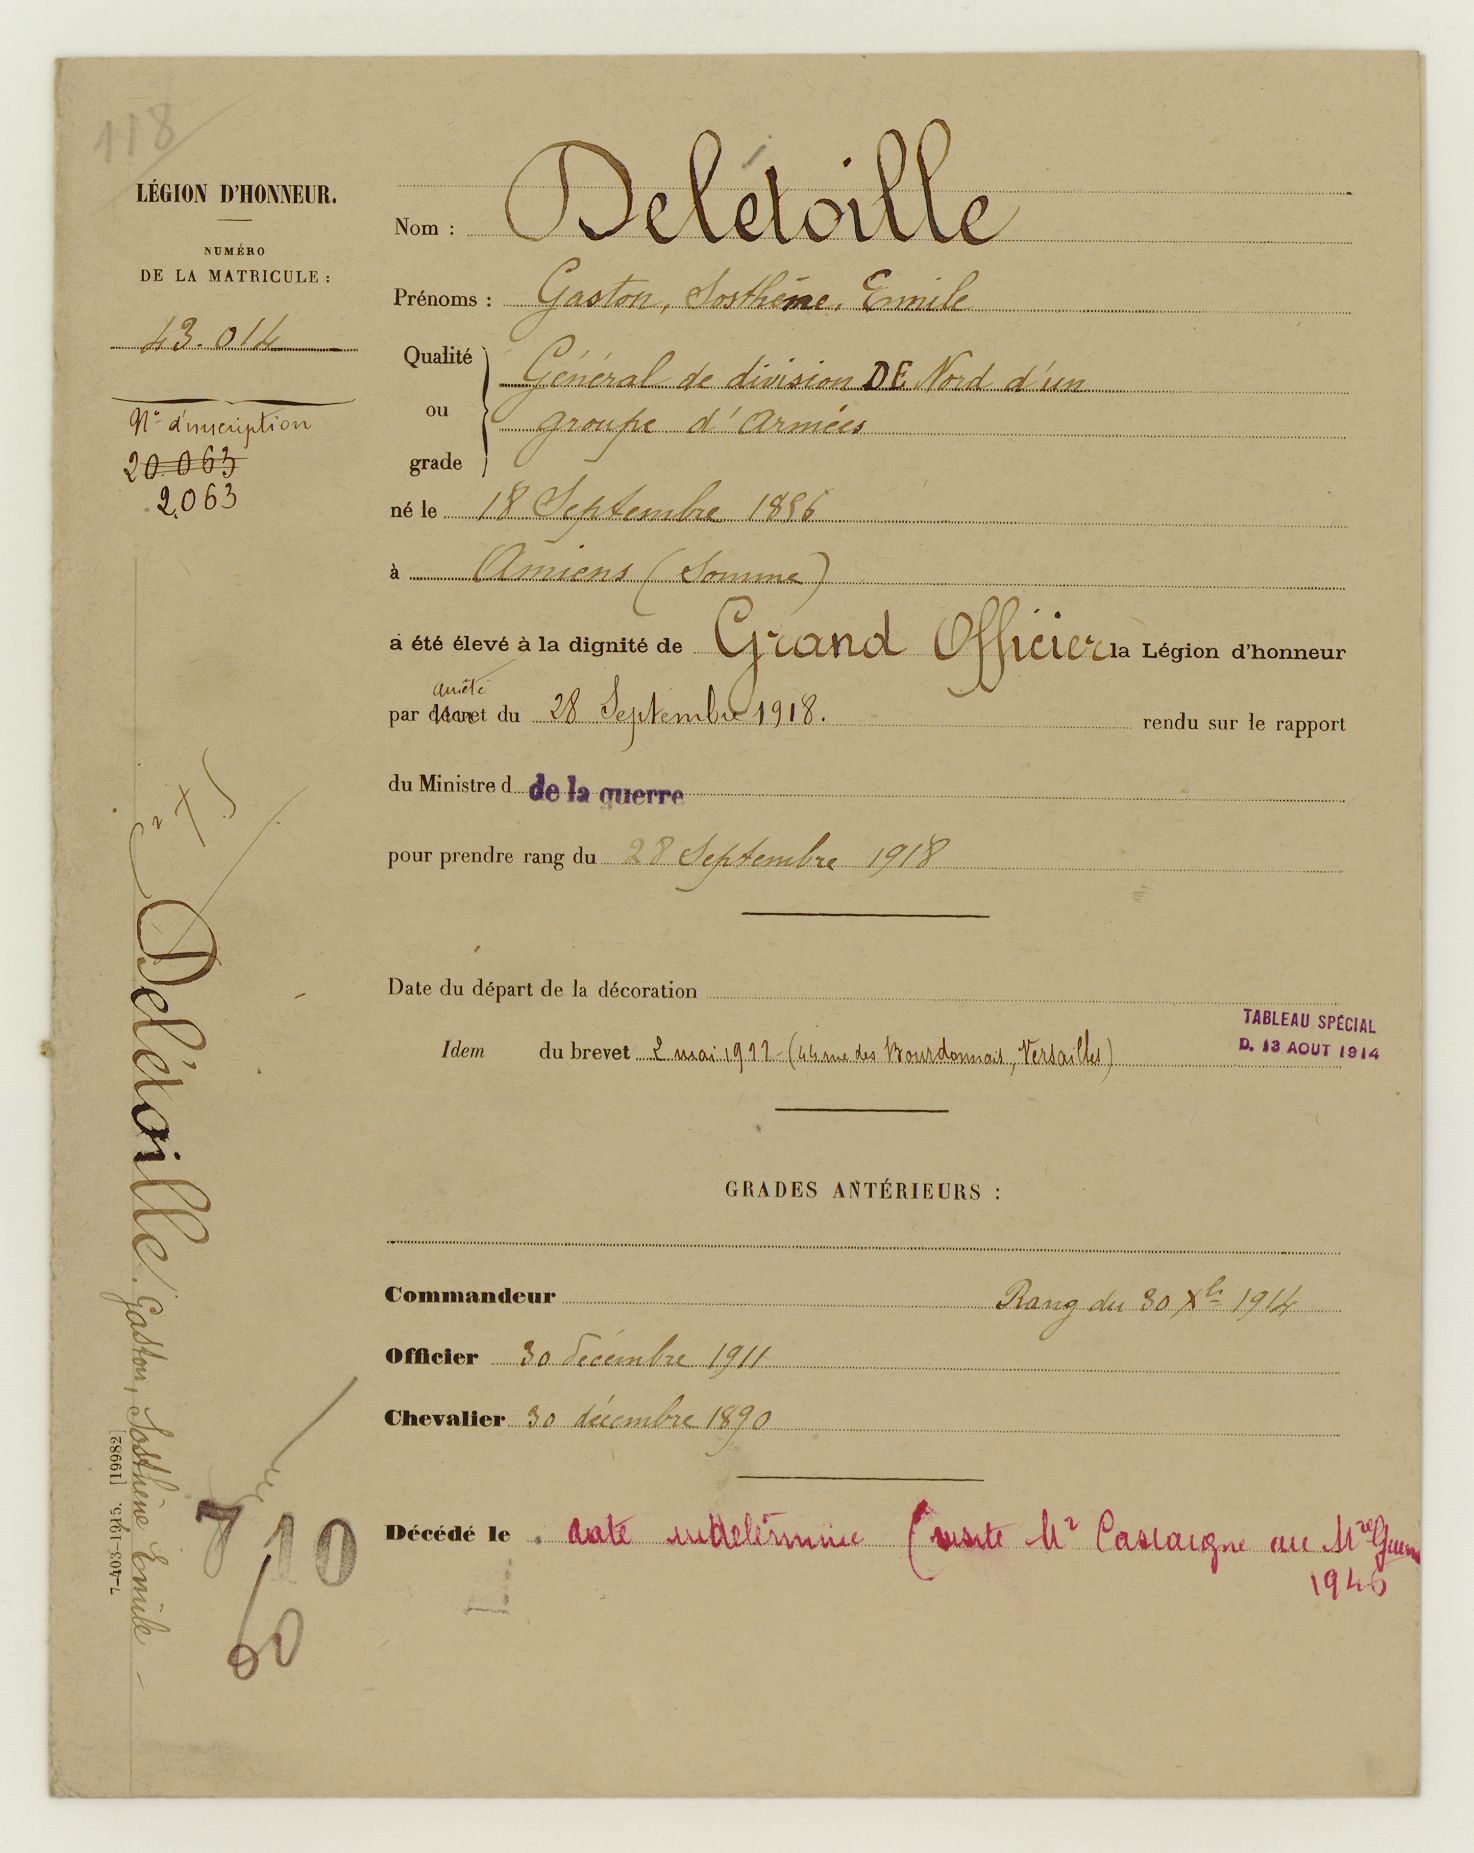 118
LÉGION D'HONNEUR.
NUMÉRO
DE LA MATRICULE :
43.014
N° d'inscription
20.063
2,063
Nom : Delétoille
Prénoms : Gaston, Sosthène, Emile
Qualité
ou
grade
Général de division DE Nord d'un
groupe d'Armées
né le 18 Septembre 1856
à Amiens (Somme)
a été élevé à la dignité de Grand Officier la Légion d'honneur
arrêté
par décret du 28 Septembre 1918. rendu sur le rapport
du Ministre d de la guerre
pour prendre rang du 28 Septembre 1918
Date du départ de la décoration
TABLEAU SPÉCIAL
D. 13 AOUT 1914
Idem du brevet 2 mai 1922 - (44 rue des Bourdonnais, Versailles)
GRADES ANTÉRIEURS :
Commandeur Rang du 30 Xbre 1914
Officier 30 décembre 1911
Chevalier 30 décembre 1890
Décédé le date indéterminée (visite Mr Castaigne au Mre Guerre
1946
Delétoille. Gaston, Sosthène Emile -
7-403-1915. [19982]
710
60